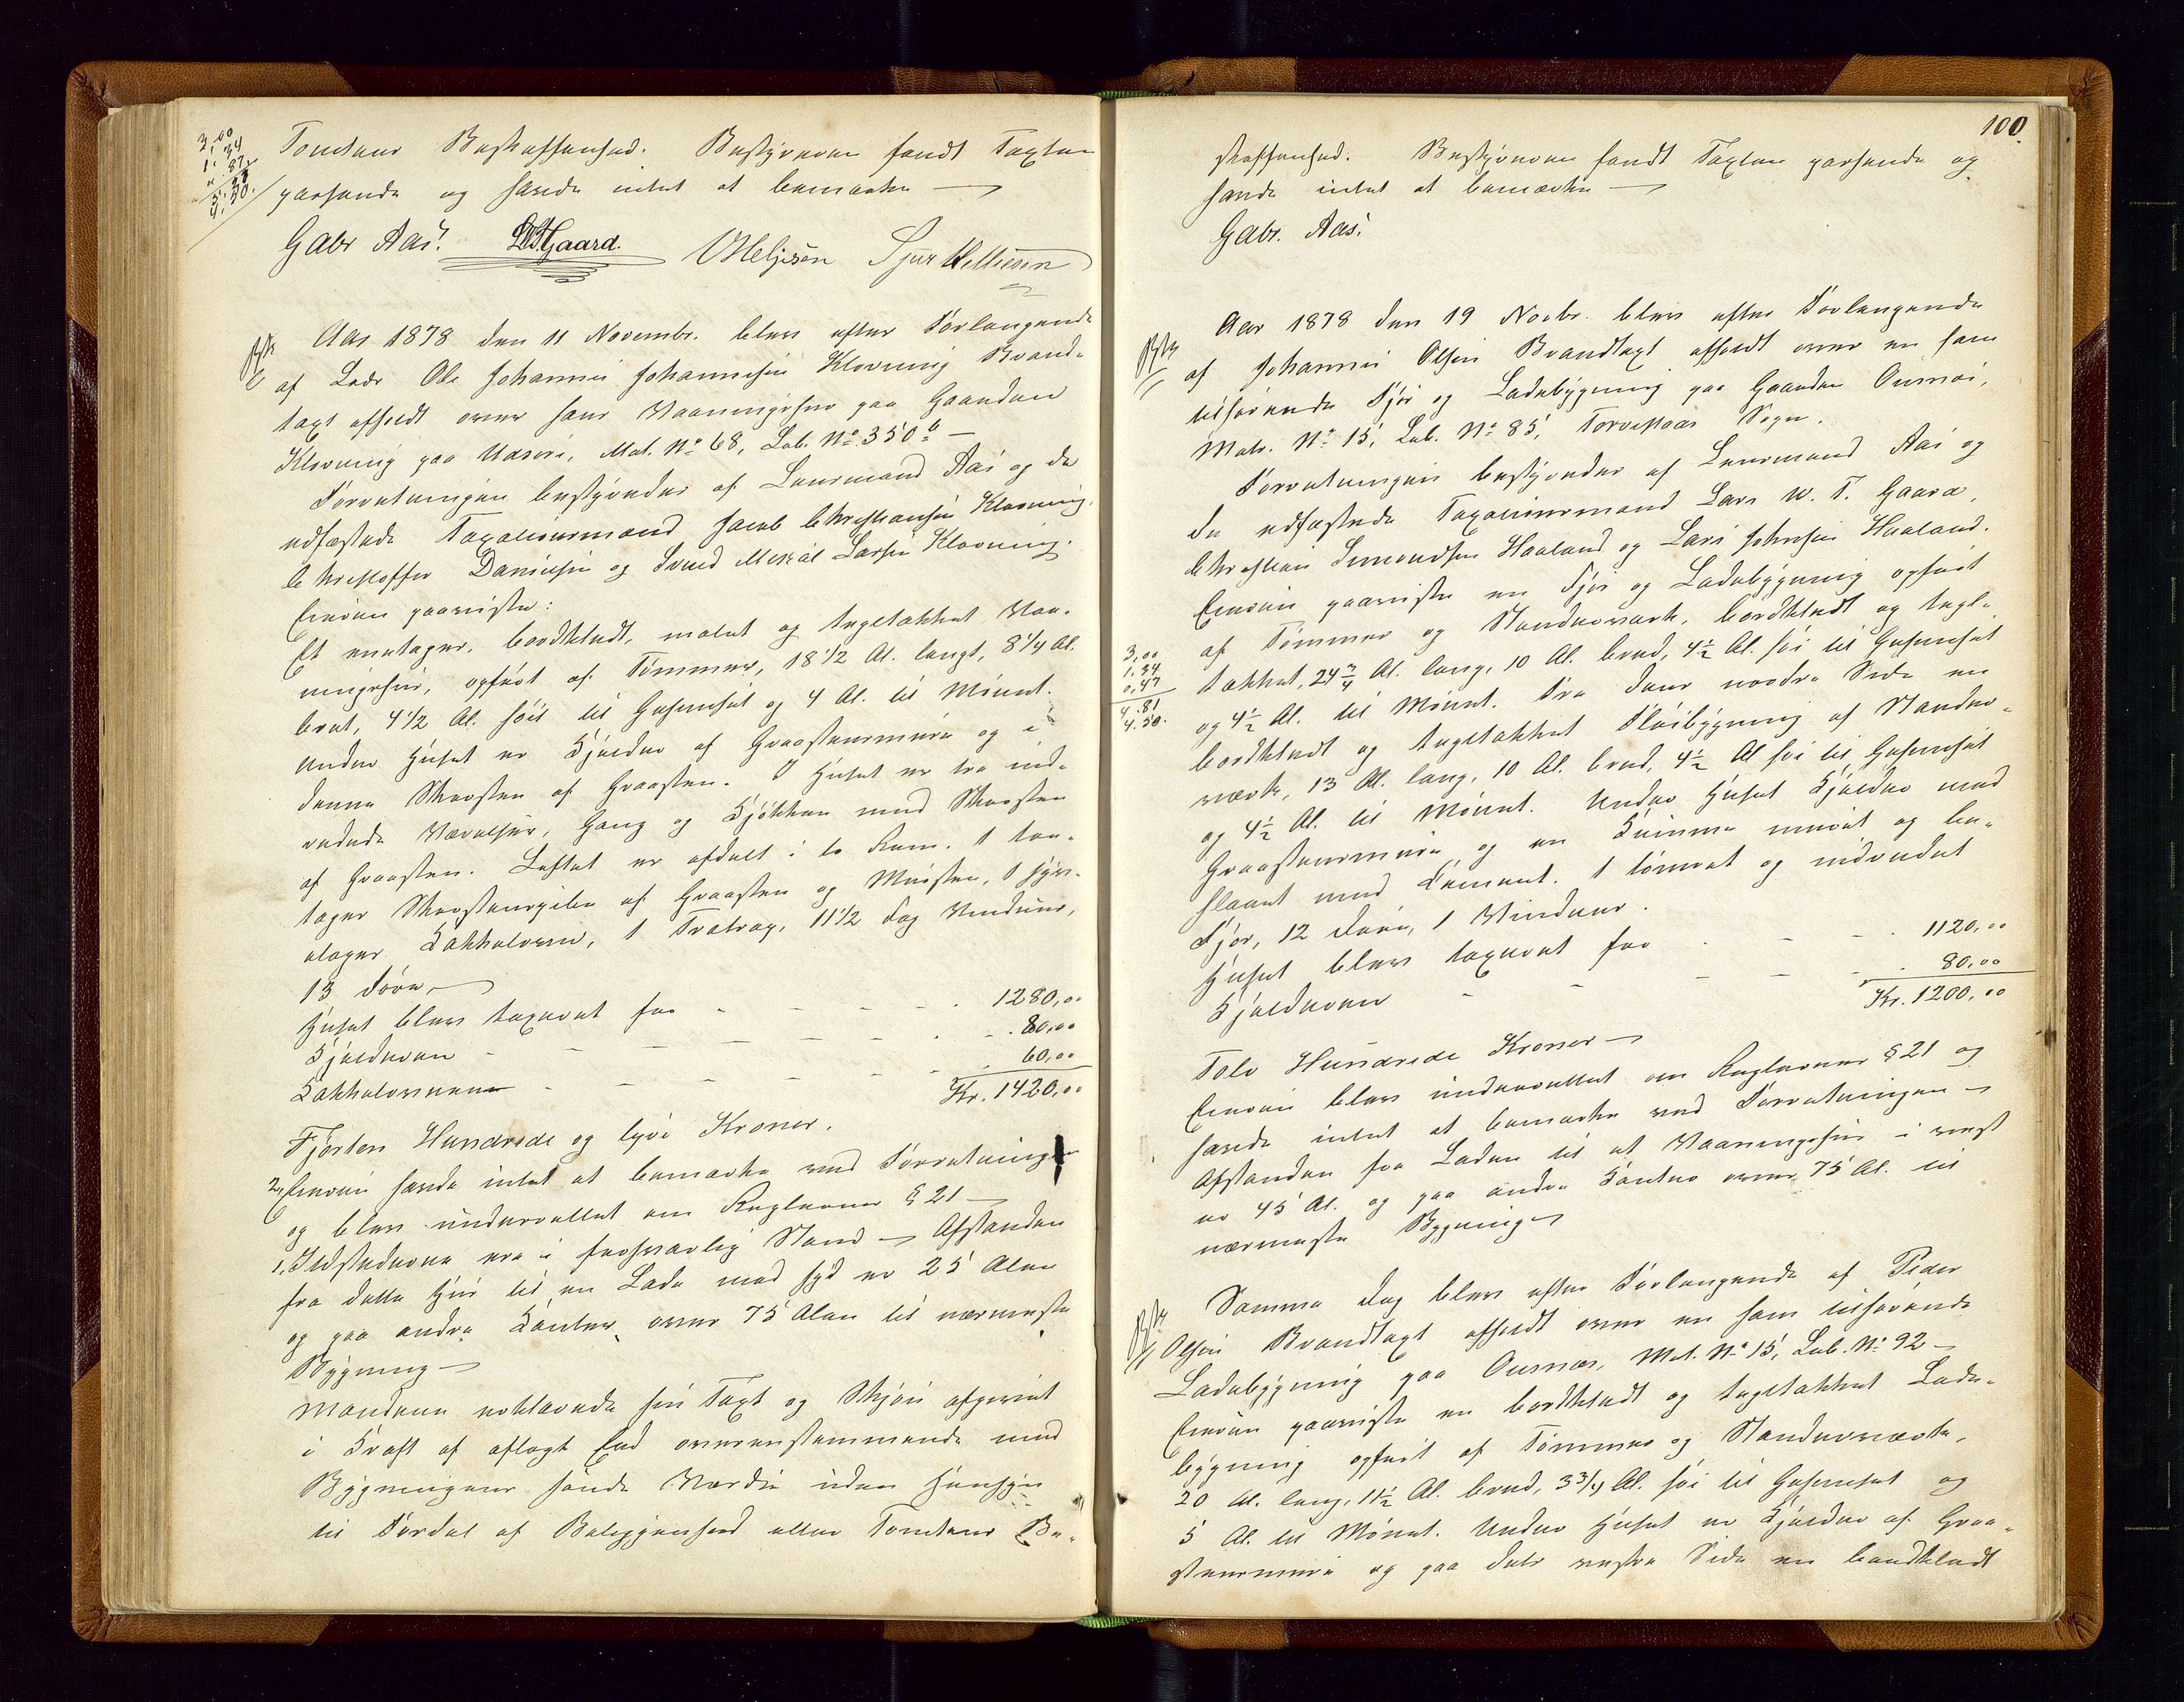 3,00
1,34
0,87
5,21
4,50.
Tomtens Beskaffenhed. Bestyreren fandt Taxten
passende og havde intet at bemærke
Gabr Aas. LWTGaard. OHelgesen Sjur Mettiesen
Aar 1878 den 11 Novembr. blev efter Forlangende
af Lods Ole Johannes Johannesen Klovning Brand-
taxt afholdt over hans Vaaningshus paa Gaarden
Klovning paa Udsire, Mat. No 68, Løb. No 350b —
Forretningen bestyredes af Lensmand Aas og de
edfæstede Taxationsmænd Jacob Christiansen Klovning,
Christoffer Danielsen og Svend Mikal Larsen Klovning.
Eieren paaviste:
Et enetages, bordklædt, malet og tegltækket Vaa-
ningshus, opført af Tømmer, 18 1/2 Al. langt, 8 1/4 Al.
bret, 4 1/2 Al. høit til Gesimset og 4 Al. til Mønnet.
Under Huset er Kjelder af Graastensmure og i
denne Skorsten af Graasten. I Huset er tre ind-
redede Værelser, Gang og Kjøkken med Skorsten
af Graasten. Loftet er afdelt i to Rum. 1 toe-
tages Skorstenspibe af Graasten og Mursten, 1 fyr-
etages Kakkelovn, 1 Trætrap, 11 1/2 Fag Vinduer,
13 Døre,
Huset blev taxeret for - - - - 1280,00
Kjelderen - - - - - - 80,00
Kakkelovnene - - - - - 60,00
Kr. 1420,00
Fjorten Hundrede og tyve Kroner.
2, Eieren havde intet at bemærke ved Forretningen
og blev underrettet om Reglernes § 21 —
1, Ildstederne ere i forsvarlig Stand — Afstanden
fra dette Hus til en Lade mod Syd er 25 Alen
og paa andre Kanter over 75 Alen til nærmeste
Bygning —
Mændene erklærede sin Taxt og Skjøn afgivet
i Kraft af aflagt Eed overensstemmende med
Bygningens sande Værdi uden Hensyn
til Fordel af Beliggenhed eller Tomtens Be-
100.
skaffenhed. Bestyreren fandt Taxten passende og
havde intet at bemærke —
Gabr. Aas.
Aar 1878 den 19 Novbr. blev efter Forlangende
af Johannes Olsen Brandtaxt afholdt over en ham
tilhørende Fjøs og Ladebygning paa Gaarden Ousnæs,
Matr. No 15, Løb. No 85, Torvestads Sogn.
Forretningen bestyredes af Lensmand Aas og
de edfæstede Taxationsmænd Lars W. T. Gaard,
Christian Simondsen Haaland og Lars Johnsen Haaland.
Eieren paaviste en Fjøs og Ladebygning opført
af Tømmer og Standerværk, bordklædt og tegl-
3,00
1,34
0,47
4.81
4.50.
tækket, 24 3/4 Al. lang, 10 Al. bred, 4 1/2 Al. høi til Gesimset
og 4 1/2 Al. til Mønnet. Fra dens nordre Side en
bordklædt og tegltækket Fløibygning af Stander-
værk, 13 Al. lang, 10 Al. bred, 4 1/2 Al høi til Gesimset
og 4 1/2 Al. til Mønnet. Under Huset Kjelder med
Graastensmure og en Kumme muret og be-
slaaet med Cement. 1 tømret og indredet
Fjøs, 12 Døre, 1 Vinduer.
Huset blev taxeret for - - - 1120,00
Kjelderen - - - - 80,00
Kr. 1200,00
Tolv Hundrede Kroner —
Eieren blev underrettet om Reglernes § 21 og
havde intet at bemærke ved Forretningen —
Afstanden fra Laden til et Vaaningshus i vest
er 45 Al. og paa andre Kanter over 75 Al. til
nærmeste Bygning —
Samme Dag blev efter Forlangende af Peder
Olsen Brandtaxt afholdt over en ham tilhørende
Ladebygning paa Ousnæs, Mat. No 15, Løb. No 92 —
Eieren paaviste en bordklædt og tegltækket Lade-
bygning opført af Tømmer og Standerværk,
20 Al. lang, 11 1/2 Al. bred, 3 3/4 Al. høi til Gesimset og
5 Al. til Mønnet. Under Huset er Kjelder af Graa-
stensmure og paa dets vestre Side en bordklædt